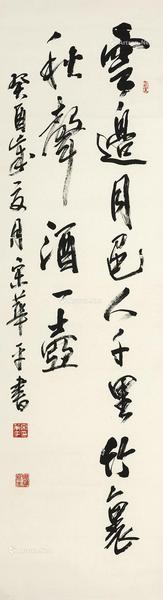 雲邊月色人千里竹裏
秋聲酒一壺
癸酉年夏月宋華平書